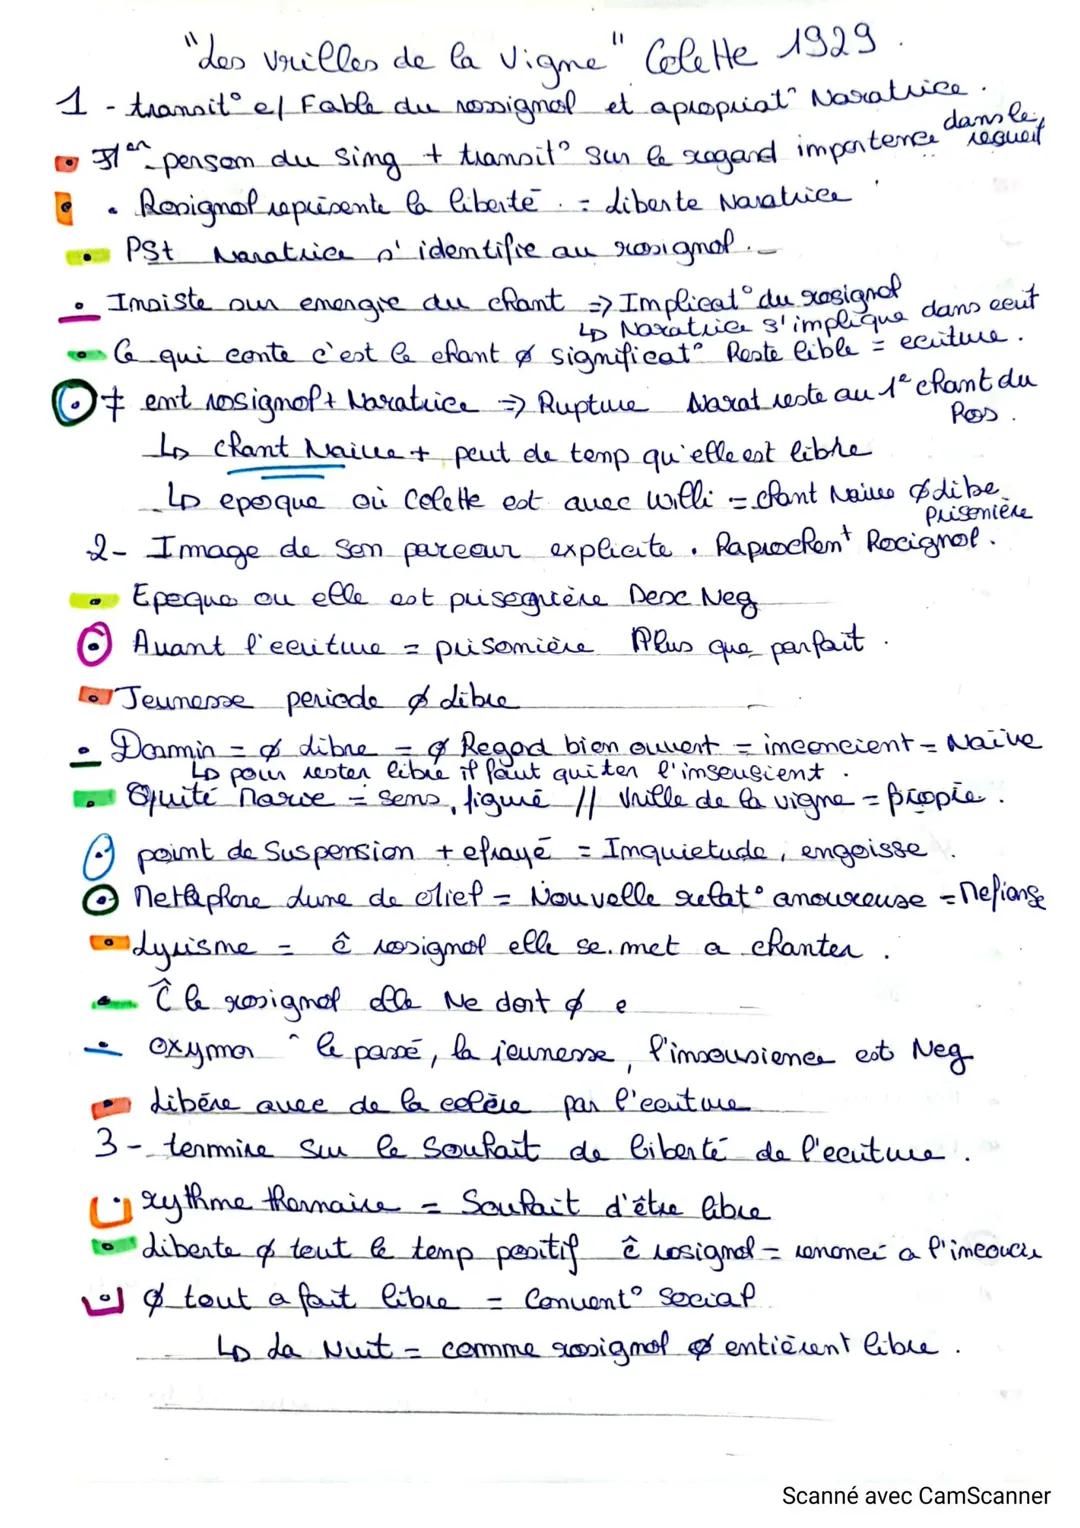 "Les vrilles de la vigne" Colette 1929.
1 - transit° e/ Fable du rossignol et apropriat° Naratrice.
person du sing + transit° sur le regard importence dans le requeil
• Rosignol représente la liberté. = liberte Naratrice
• PSt Naratrice s'identifie au rosignol.
• Insiste sur energie du chant => Implicat° du rosignol
↳ Naratrice s'implique dans ecrit
• Ce qui conte c'est le chant ø significat° Reste lible = ecriture.
• ≠ ent rosignol + Naratrice => Rupture Narat reste au 1e chant du Ros.
↳ chant Naive + peut de temp qu'elle est libre
↳ epoque où Colette est avec Willi = chant Naive ø libe prisonière
2- Image de son parcour explicite. Raprochent Rocignol.
• Epoque ou elle est prisognière Desc Neg
• Avant l'ecriture = prisonière Plus que parfait.
• Jeunesse periode ø libre
• Dormin = ø libre = ø Regard bien ouvert = inconcient = Naïve
↳ pour rester libre il faut quiter l'insousient.
• = sens figuré // Vrille de la vigne = propre.
• point de Suspension + efrayé = Inquietude, engoisse.
• Metaphore lune de = Nouvelle relat° amoureuse = Mefianse
• Lyrisme = ê rosignol elle se met a chanter.
• Ĉ le rosignol elle Ne dort ø e
• oxymor ^ le passé, la jeunesse, l'insousience est Neg
• Libère avec de la colère par l'ecriture
3 - termine sur le Souhait de liberté de l'ecriture.
• rythme thernaire = Souhait d'être libre
• Liberte ø tout le temp positif ê rosignol = renoncé a
• ø tout a fait libre = Convent° Social
↳ La Nuit = comme rosignol ø entièrent libre.
Scanné avec CamScanner